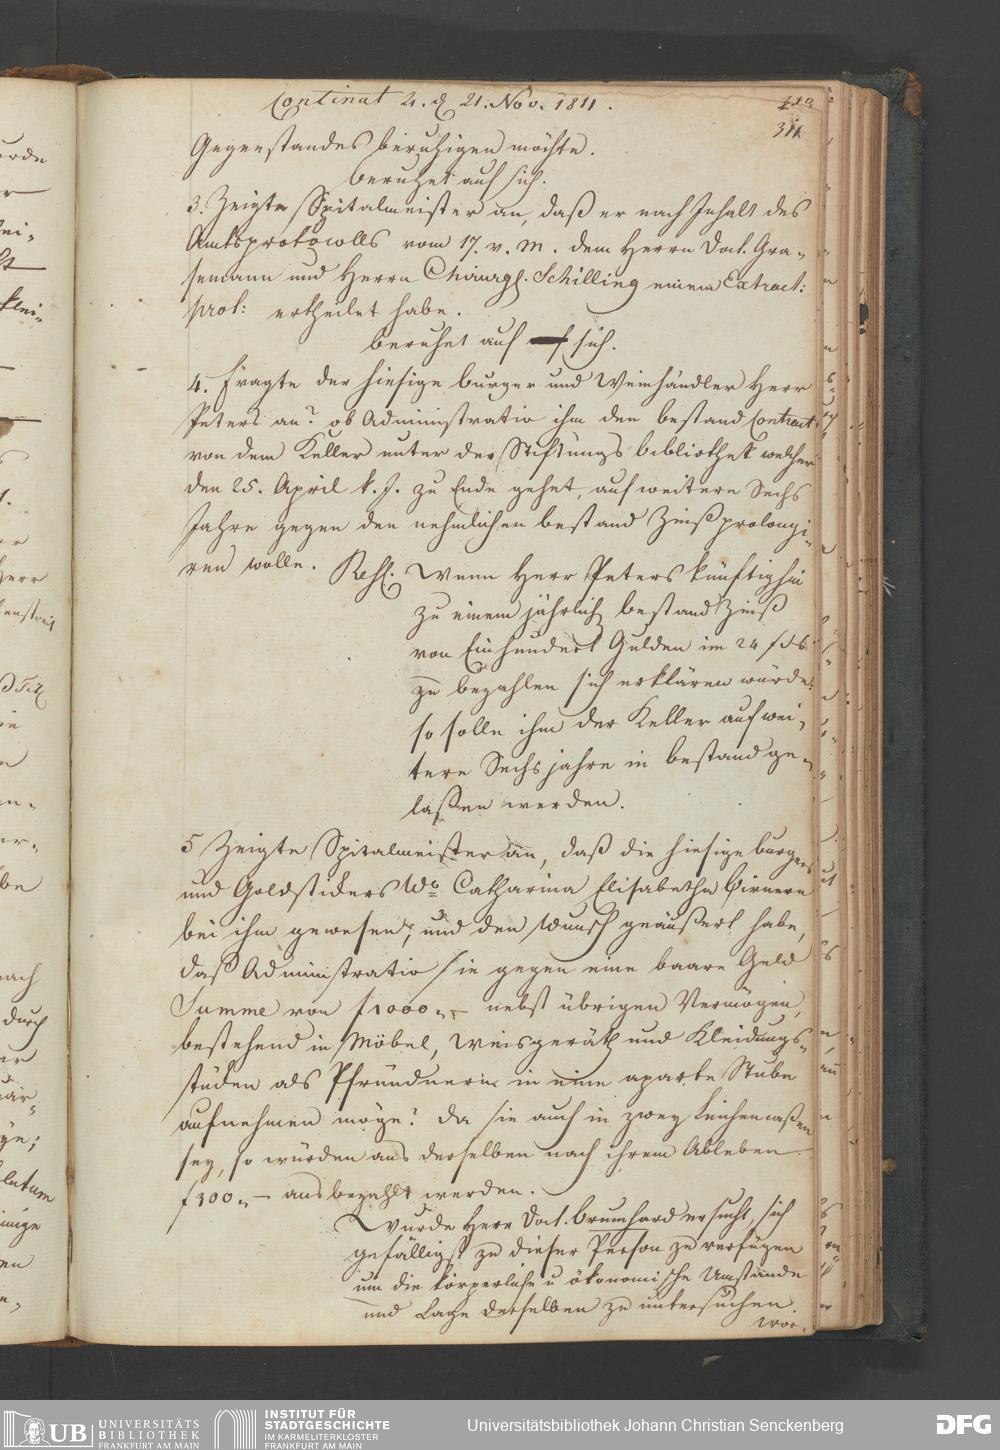 Continat 4. d. 21. Nov. 1811.
311
Gegenstandes beruhigen möchte.
beruhet auf sich.
3. Zeigte Spitalmeister an, daß er nach Inhalt des
Amtsprotocolls vom 17. v. M. dem Herrn Doct. Gra-
semann und Herrn Chirurg. Schilling einem Extract:
prot: ertheilet habe.
beruhet auf sich.
4. Fragte der hiesige burger und Weinhändler Herr
Peters an? ob Administratio ihm den bestand Contract
von dem Keller unter der Stiftungs bibliothek welcher
den 25. April k. J. zu Ende gehet, auf weitere Sechs
Jahre gegen den nehmlichen bestand Zinß prolongi-
ren wolle. Resl. Wenn Herr Peters künftighin
zu einem jährlich bestand Zinß
von Einhundert Gulden im 24 f
zu bezahlen sich erklären würde:
so solle ihm der Keller auf wei-
tere Sechs jahre in bestand ge-
laßen werden.
5 Zeigte Spitalmeister an, daß die hiesige burgers
und Goldstickers Wb Catharina Elisabetha Birnern
bei ihm gewesen, und den Wunsch geäußert habe,
daß Administratio sie gegen eine baare Geld
Summe von f 1000.- nebst übrigen Vermögen,
bestehend in Möbel, Weisgeräth und Kleidungs-
stücken als Pfründnerin in eine aparte Stube
aufnehmen möge? da sie auch in zwey Leichencaßen
sey, so würden aus derselben nach ihrem Ableben
f 300.- ausbezahlt werden.
Wurde Herr Doct. Brumhard ersucht, sich
gefälligst zu dieser Person zu verfügen
um die körperliche u ökonomische Umstände
und Lage derselben zu untersuchen.
wor-
UB UNIVERSITÄTS
BIBLIOTHEK
FRANKFURT AM MAIN
INSTITUT FÜR
STADTGESCHICHTE
IM KARMELITERKLOSTER
FRANKFURT AM MAIN
Universitätsbibliothek Johann Christian Senckenberg
DFG